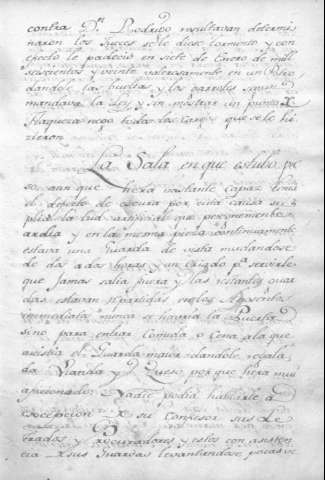 contra Dⁿ. Rodrigo resultavan determi
naron los Jueces se le diese tormento y con
efecto le padeció en siete de Enero de mil
seiscientos y veinte valerosamente en un Potro
dandole las bueltas y los garrotes segun
mandava la Ley, y sin mostrar un punto de
flaqueza nego todos los cargos que se le hi
zieron
La Sala en que estubo pre
so, aun que hera bastante capaz tenia
el defecto de obscura por cuia causa su
plia la luz artificial que perennemente
ardia y en la misma pieza continuamente
estava una Guarda de vista mudandose
de dos a dos horas y un Criado pª servirle
que jamas salia fuera y las restantes guar
das estavan repartidas en los Aposentos
immediatos nunca se habria la Puerta
sino para entrar Comida, o Cena a la que
asistia el Guarda maior velandole, regala
da Vianda y Queso, por que hera mui
aficionado. Nadie podia hablarle a
excepcion de su Confesor sus Le
trados y Procuradores y estos con asisten
cia de sus Guardas levantandose pocas ve